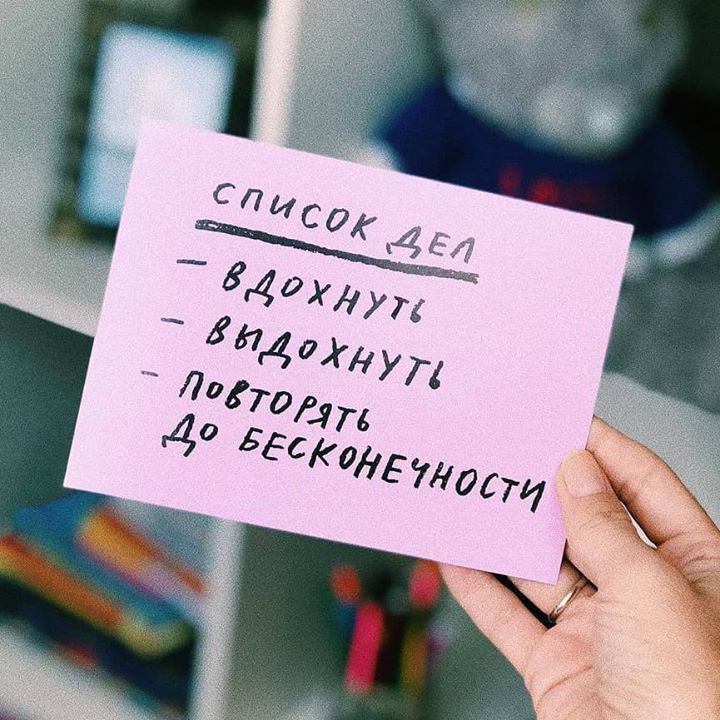 СПИСОК ДЕЛ
- ВДОХНУТЬ
- ВЫДОХНУТЬ
- ПОВТОРЯТЬ
ДО БЕСКОНЕЧНОСТИ